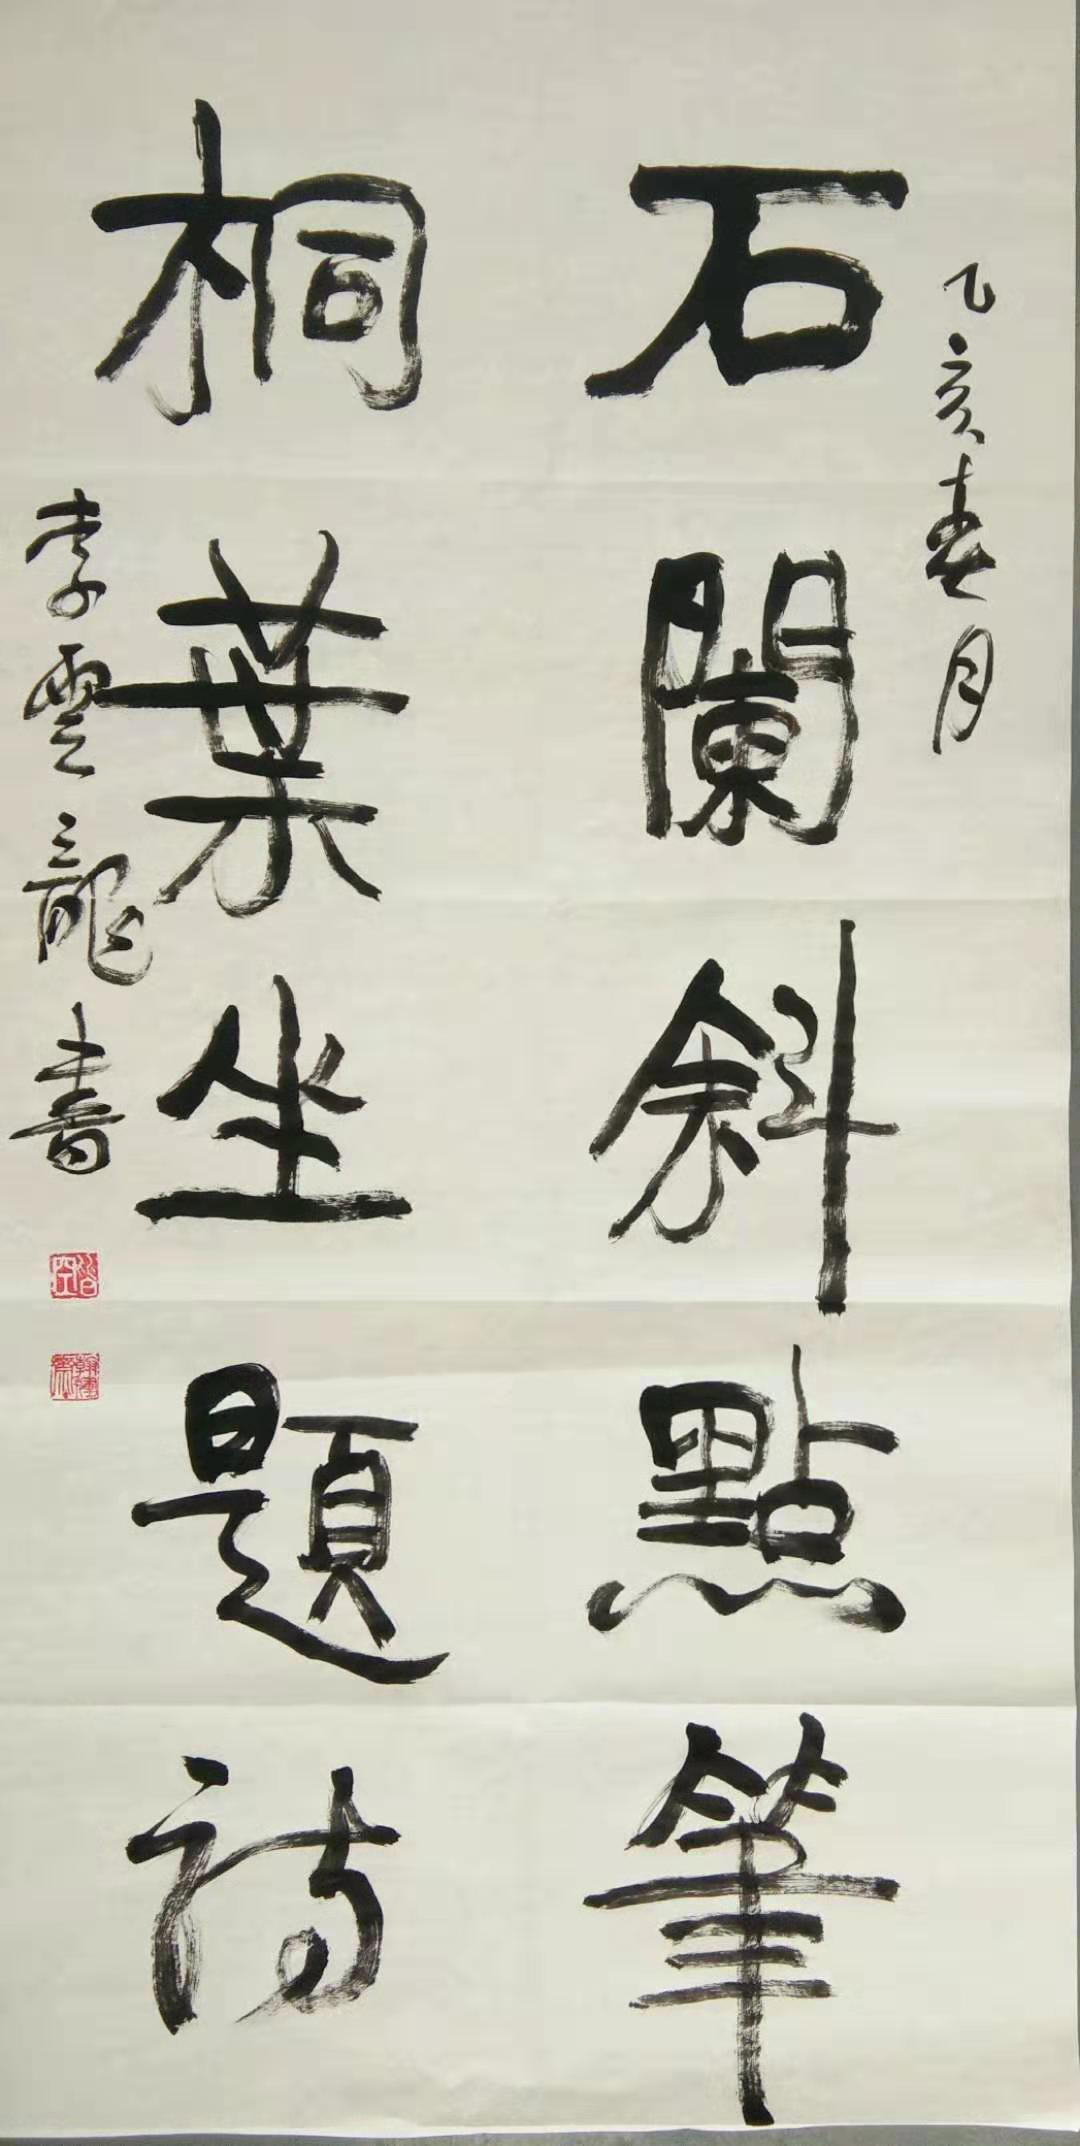 乙亥春月
石闌斜點筆
桐葉坐題詩
李雲龍書